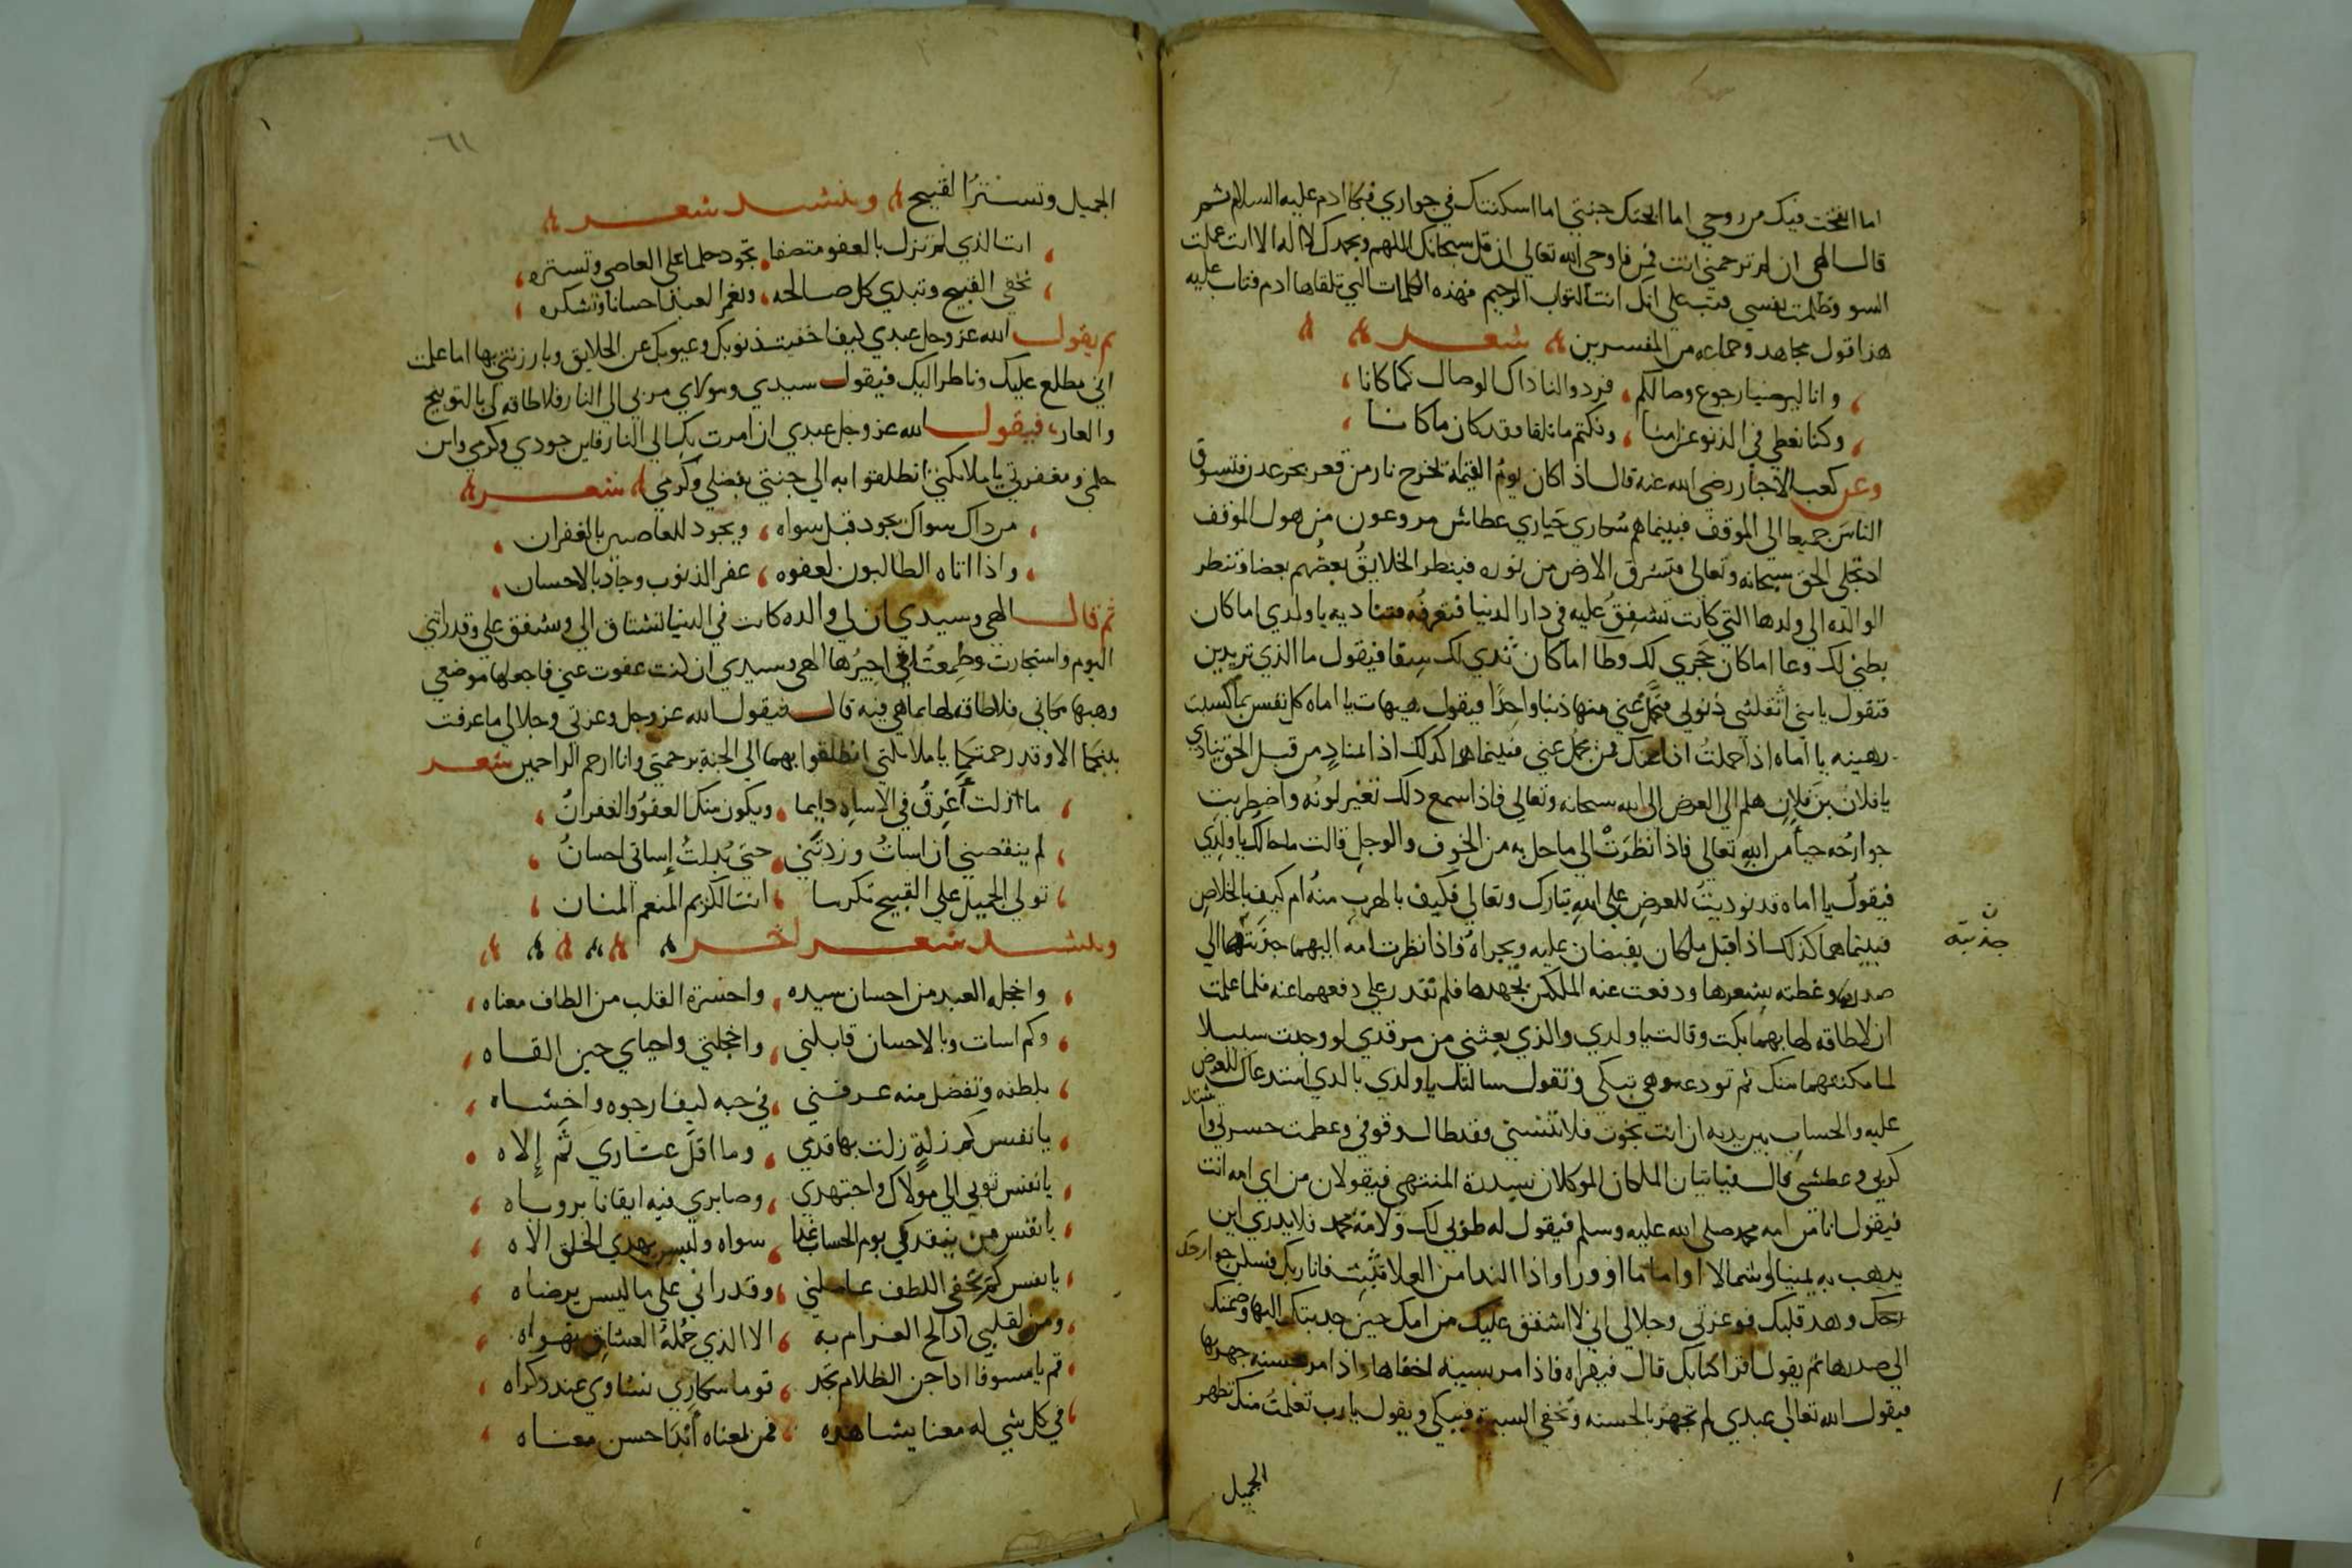 اما نفخت فيك من روحي اما ابحتك جنتي اما اسكنتك في جواري فبكا ادم عليه السلام ثم
قال الهي ان لم ترحمني انت فمن فاوحي الله تعالي ان قل سبحانك اللهم وبحمدك لا اله الا انت عملت
السو وظلمت نفسي فتب علي انك انت التواب الرحيم فهذه الكلمات التي تلقاها ادم فتاب عليه
هذا قول مجاهد وجماعه من المفسرين شعر
وانا ليرضينا رجوع وصالكم فردوا لنا ذاك الوصال كما كانا
وكنا نغطي في الذنوب ونكتم ما نلقا وقد كان ما كانا
وعن كعب الاحبار رضي الله عنه قال اذا كان يوم القيمة تخرج نار من قعر بحر عدن فتسوق
الناس جميعا الي الموقف فبينما هم سكاري حياري عطاش مروعون من هول الموقف
اذ تجلي الحق سبحانه وتعالي فتشرق الارض من نوره فينظر الخلايق بعضهم بعضا وتنظر
الوالده الي ولدها التي كانت تشفق عليه في دار الدنيا فتعرفه فتناديه يا ولدي اما كان
بطني لك وعا اما كان حجري لك وطا اما كان ثدي لك سقا فيقول ما الذي تريدين
فتقول يا بني اثقلتني ذنوبي فتحمل عني منها ذنبا واحدا فيقول هيهات يا اماه كل نفس بما كسبت
رهينه يا اماه اذا حملت انا عنك فمن يحمل عني فبينما هما كذلك اذا المناد من قبل الحق ينادي
يا فلان بن فلان هلم الي العرض الي الله سبحانه وتعالي فاذا سمع ذلك تغير لونه واضطربت
جوارحه حيا من الله تعالي فاذا نظرت الي ما حل به من الخوف والوجل قالت ما حالك يا ولدي
فيقول يا اماه قد نوديت للعرض علي الله تبارك وتعالي فكيف بالهرب منه ام كيف بالخلاص
فبينما هما كذلك اذ اقبل ملكان يقبضان عليه ويجراه فاذا نظرت امه اليهما جذبتهما الي
ن
جذبته
صدرها وغطته بشعرها ودفعت عنه الملكين بجهدها فلم تقدر علي دفعهما عنه فلما علمت
ان لا طاقه لها بهما بكت وقالت يا ولدي والذي بعثني من مرقدي لو وجدت سبيلا
لما مكنتهما منك ثم تودعه وهي تبكي وتقول سالتك يا ولدي بالذي استدعاك للعرض
عليه والحساب بين يديه ان انت نجوت فلا تنسني فقد طال وقوفي وعظمت حسرتي واشتد
كربي وعطشي قال فياتيان الملكان الموكلان بسدرة المنتهي فيقولان من اي امه انت
فيقول انا من امه محمد صلي الله عليه وسلم فيقول له طوبي لك ولامة محمد فلا يدري اين
يذهب به يمينا او شمالا او اماما او ورا واذا الندا من العلا تثبت فانا ربك فسكن جوارحك
وهد قلبك فوعزتي وجلالي اني لا اشفق عليك من امك حين جذبتك اليها وضمتك
الي صدرها ثم يقول اقرا كتابك قال فيقراه فاذا مر بسيئه اخفاها واذا مر بحسنه جهر بها
فيقول الله تعالي عبدي لم تجهر بالحسنه وتخفي السيئه فيبكي ويقول يا رب تعلمت منك تظهر
الجميل
٦١
الجميل وتستر القبيح وينشد شعر
انت الذي لم تزل بالعفو متصفا تجود حلما علي العاصي وتستره
تخفي القبيح وتبدي كل صالحه وتغمر العبد احسانا وتشكره
ثم يقول الله عز وجل عبدي كيف اخفيت ذنوبك وعيوبك عن الخلايق وبارزتني بها اما علمت
اني مطلع عليك وناظر اليك فيقول سيدي ومولاي مر بي الي النار فلا طاقه لي بالتوبيخ
والعار فيقول الله عز وجل عبدي ان امرت بك الي النار فاين جودي وكرمي واين
حلمي ومغفرتي يا ملايكتي انطلقوا به الي جنتي بفضلي وكرمي شعر
من ذاك سواك يجود قبل سواه ويجود للعاصين بالغفران
واذا اتاه الطالبون لعفوه غفر الذنوب وجاد بالاحسان
ثم قال الهي وسيدي ان لي والده كانت في الدنيا تشتاق الي وتشفق علي وقد راتني
اليوم واستجارت وطمعت اني اجيرها الهي وسيدي ان كنت عفوت عني فاجعلها موضعي
وهبها مكاني فلا طاقه لها بما هي فيه قال فيقول الله عز وجل وعزتي وجلالي ما عرفت
بينكما الا وقد رحمتكما يا ملايكتي انطلقوا بهما الي الجنة برحمتي وانا ارحم الراحمين شعر
ما زلت أغرق في الاساه دايما ويكون منك العفو والغفران
لم ينقصني ان اسات وزدتني حتي بدلت إساتي احسان
تولي الجميل علي القبيح تكرما انت الكريم المنعم المنان
وينشد شعر اخر
واخجلة العبد من احسان سيده واحسرة القلب من الطاف معناه
وكم اسات وبالاحسان قابلني واخجلتي واحياي حين القاه
بلطفه وتفضل منه عرفني في حبه كيف ارجوه واخشاه
يا نفس كم زلة زلت بها قدمي وما اقل عثاري ثم إلاه
يا نفس توبي الي مولاك واجتهدي وصابري فيه ايقانا بروياه
يا نفس من ينقذكي يوم الحساب غدا سواه وليس يهدي الخلق الاه
يا نفس كم بخفي اللطف عاملني وقد راني علي ما ليس يرضاه
ومن لقلبي اذا لح الغرام به الا الذي جملة العشاق تهواه
قم يا مسوفا اذا جن الظلام تجد قوما سكاري نشاوي عند ذكراه
في كل شي له معنا يشاهده فمن لمعناه أبدا حسن معناه